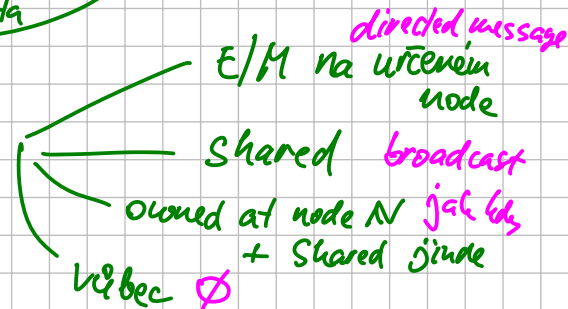 da
directed message
E/M na určeném
node
Shared broadcast
owned at node N jak kdy
+ Shared jinde
vůbec Ø